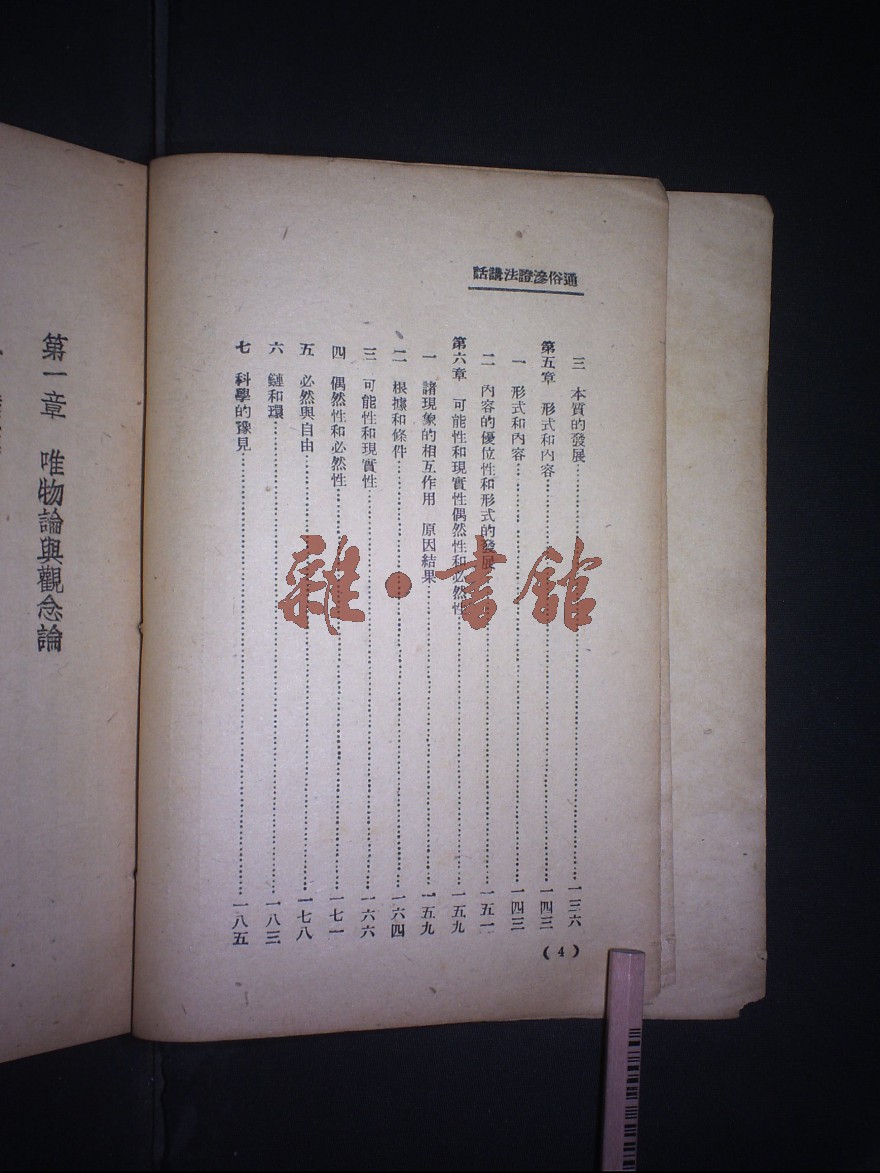 通俗辯證法講話
三 本質的發展……一三六
第五章 形式和內容……一四三
一 形式和內容……一四三
二 內容的優位性和形式的發展……一五一
第六章 可能性和現實性偶然性和必然性……一五九
一 諸現象的相互作用 原因結果……一五九
二 根據和條件……一六四
三 可能性和現實性……一六六
四 偶然性和必然性……一七一
五 必然與自由……一七八
六 鏈和環……一八三
七 科學的豫見……一八五
(4)
第一章 唯物論與觀念論
雜·書館